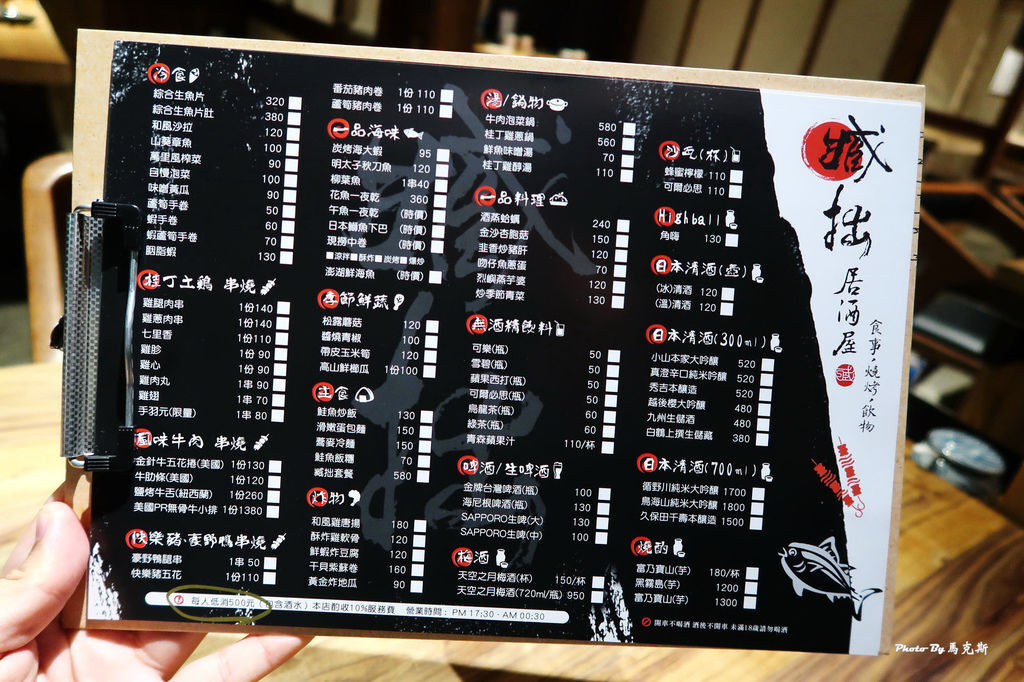 冷食
綜合生魚片 320
綜合生魚片肚 380
和風沙拉 120
山葵章魚 100
萬里風榨菜 90
自慢泡菜 100
味噌黃瓜 100
蘆筍手卷 50
蝦手卷 60
蝦蘆筍手卷 70
胭脂蝦 130
桂丁土鷄 串燒
雞腿肉串 1份140
雞蔥肉串 1份140
七里香 1份110
雞胗 1份 90
雞心 1份 90
雞肉丸 1串 90
雞翅 1串 70
手羽元(限量) 1串 80
風味牛肉 串燒
金針牛五花捲(美國) 1份130
牛肋條(美國) 1份120
鹽烤牛舌(紐西蘭) 1份260
美國PR無骨牛小排 1份1380
快樂豬·豪野鴨串燒
豪野鴨腿串 1串 50
快樂豬五花 1份110
番茄豬肉卷 1份 110
蘆筍豬肉卷 1份 110
一品海味
炭烤海大蝦 95
明太子秋刀魚 120
柳葉魚 1串40
花魚一夜乾 360
午魚一夜乾 (時價)
日本鰤魚下巴 (時價)
現撈中卷 (時價)
■涼拌■酥炸■炭烤■爆炒
澎湖鮮海魚 (時價)
季節鮮蔬
松露蘑菇 120
醬燒青椒 100
帶皮玉米筍 120
高山鮮櫛瓜 1份100
主食
鮭魚炒飯 130
滑嫩蛋包麵 150
蕎麥冷麵 150
鮭魚飯糰 70
臧拙套餐 580
炸物
和風雞唐揚 180
酥炸雞軟骨 120
鮮蝦炸豆腐 120
干貝紫蘇卷 160
黃金炸地瓜 90
湯/鍋物
牛肉泡菜鍋 580
桂丁雞蔥鍋 560
鮮魚味噌湯 70
桂丁雞醇湯 110
一品料理
酒蒸蛤蠣 240
金沙杏鮑菇 150
韭香炒豬肝 120
吻仔魚蔥蛋 70
烈嶼蒸芋婆 120
炒季節青菜 130
無酒精飲料
可樂(瓶) 50
雪碧(瓶) 50
蘋果西打(瓶) 50
可爾必思(瓶) 50
烏龍茶(瓶) 60
綠茶(瓶) 60
青森蘋果汁 110/杯
啤酒/生啤酒
金牌台灣啤酒(瓶) 100
海尼根啤酒(瓶) 130
SAPPORO生啤(大) 130
SAPPORO生啤(中) 100
梅酒
天空之月梅酒(杯) 150/杯
天空之月梅酒(720ml/瓶) 950
沙瓦(杯)
蜂蜜檸檬 110
可爾必思 110
Highball
角嗨 130
日本清酒(壺)
(冰)清酒 120
(溫)清酒 120
日本清酒(300ml)
小山本家大吟釀 520
真澄辛口純米吟釀 520
秀吉本釀造 520
越後櫻大吟釀 480
九州生儲酒 480
白鶴上撰生儲藏 380
日本清酒(700ml)
循野川純米大吟釀 1700
鳥海山純米大吟釀 1800
久保田千壽本釀造 1500
燒酌
富乃寶山(芋) 180/杯
黑霧島(芋) 1200
富乃寶山(芋) 1300
每人低消500元(包含酒水)本店酌收10%服務費 營業時間: PM 17:30 - AM 00:30
開車不喝酒 酒後不開車 未滿18歲請勿喝酒
臧拙
居酒屋
食事·燒烤·飲物
Photo By 馬克斯